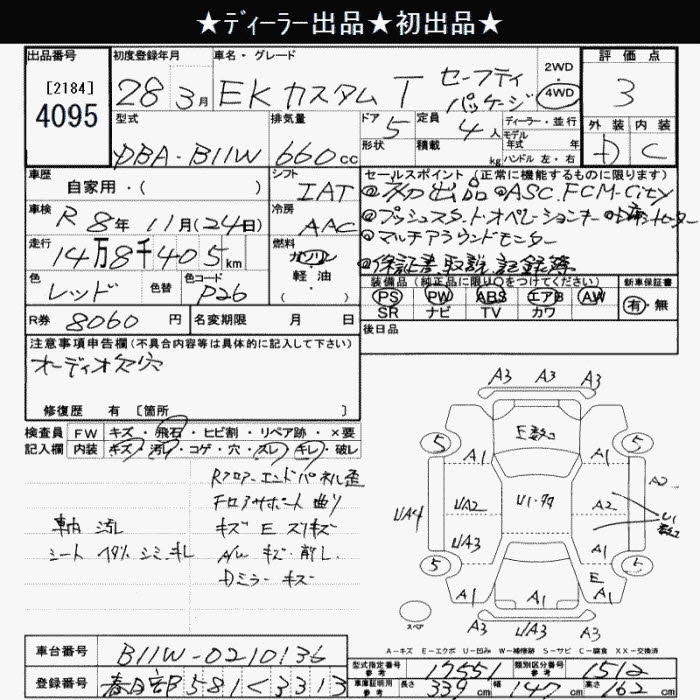 ★ディーラー出品★初出品★
出品番号 初度登録年月 車名・グレード 2WD 評価点
[2184] 4095 28年3月 EKカスタム T セーフティパッケージ ・ 4WD 3
型式 排気量 ドア 5 定員 4人 ディーラー・並行 外装 内装
DBA-B11W 660cc 形状 積載 kg モデル年式 年 D C
ハンドル 左・右
車歴 シフト セールスポイント (正常に機能するものに限ります)
自家用・( ) IAT ◎初出品 ◎ASC.FCM-City
車検 R8年11月(24日) 冷房 AAC ◎プッシュスタートオペレーションキー
走行 14万8千405km 燃料 ガソリン ◎マルチアラウンドモニター
軽・油 ・( ) ◎保証書 取説 記録簿
色 レッド 色替 色コード P26 装備品 (純正品に限り○をつけてください) 新車保証書
PS PW ABS エアB AW 有・無
SR ナビ TV カワ
R券 8060円 名変期限 月 日 後日品
注意事項申告欄(不具合内容等は具体的に記入して下さい)
オーディオ欠穴
修復歴 有 [箇所 ]
検査員 FW キズ・飛石・ヒビ割・リペア跡・×要
記入欄 内装 キズ・汚レ・コゲ・穴・スレ・キレ・破レ
Rフロアーエンドパネル歪
Fコアサポート曲り
車内 汚レ キズ E スリキズ
シート シミ キレ A/W キズ・削レ
Dミラー キズ
A3 A3 A3
E数コ
5 A1 A1 5
A2
UA4 UA2 U1・キズ A2 U1数コ
UA3 A1
5 E 5
A1 A1 A1
スペア UA3 A3 A3
A-キズ E-エクボ U-凹み W-補修跡 S-サビ C-腐食 XX-交換済
車台番号 B11W-0210136 型式指定番号 参考 17551 類別区分番号 参考 1512
登録番号 春日部581く3313 車庫証明用 参考 長さ 339cm 幅 147cm 高さ 162cm